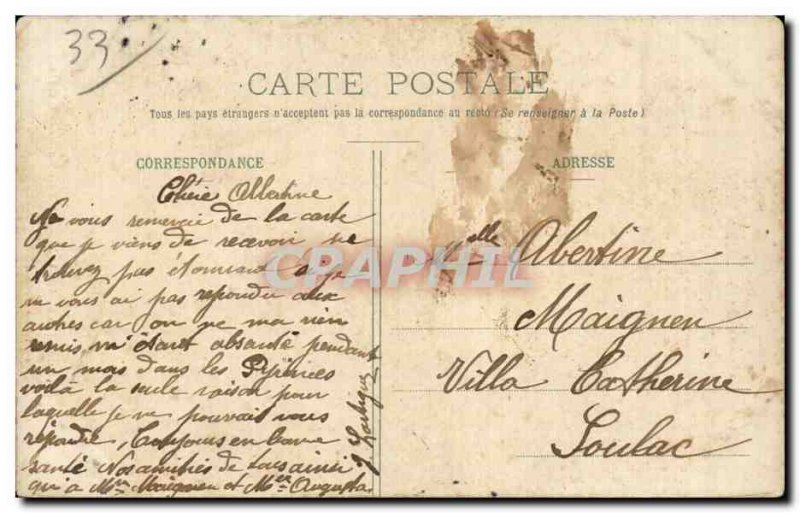 33
CARTE POSTALE
Tous les pays étrangers n'acceptent pas la correspondance au recto (Se renseigner à la Poste)
CORRESPONDANCE
ADRESSE
Chérie Albertine
Je vous remercie de la carte
que je viens de recevoir ne
trouvez pas étonnant si je
ne vous ai pas repondu aux
autres car on ne ma rien
remis m'étant absenté pendant
un mois dans les Pyrénées
voilà la seule raison pour
laquelle je ne pouvait vous
répondre, Toujours en bonne
santé Nos amitiés de tous ainsi
qu'a Mme Maignen et Augusta
elle Abertine
Maignen
Villa Catherine
Soulac
CPAPHIL